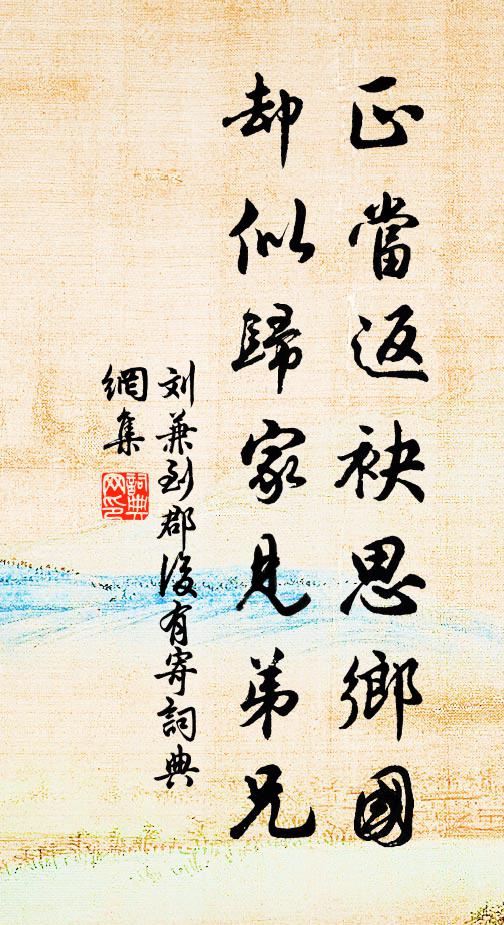 正當返袂思鄉國
却似歸家見弟兄
刘兼到郡後有寄詞典
網集
詞典
网印